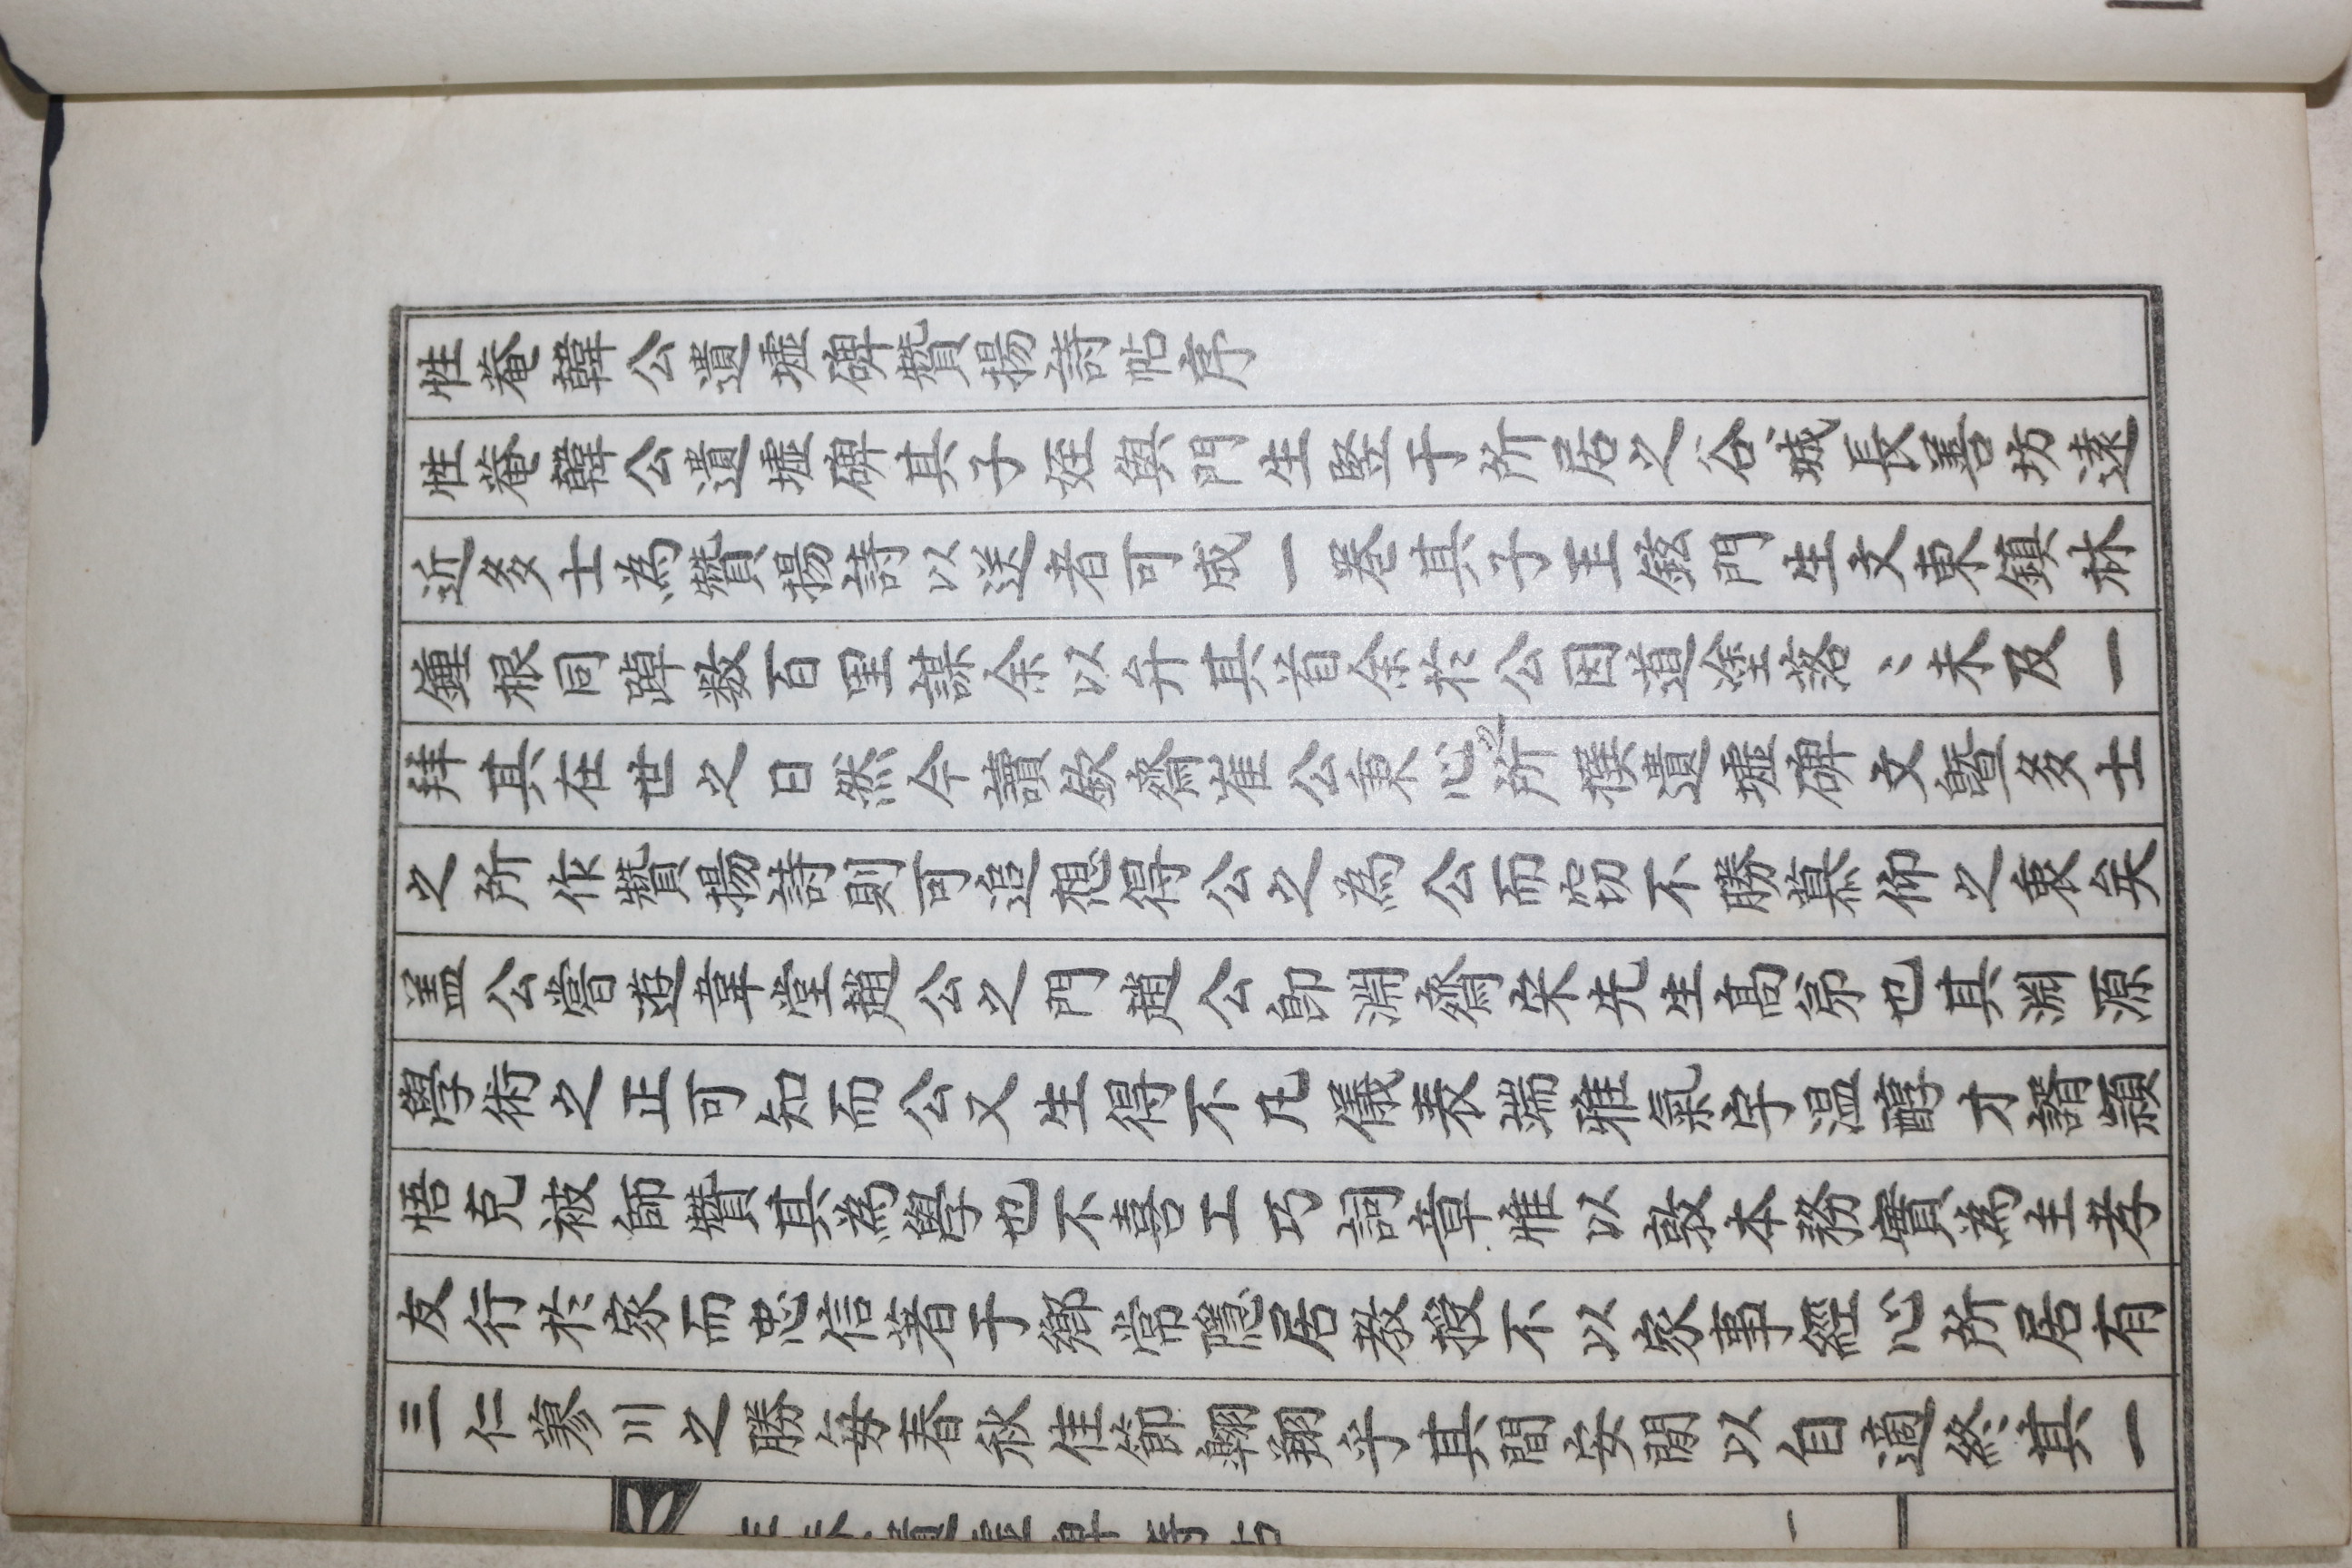 性菴韓公遺墟碑贊揚詩帖序
性菴韓公遺墟碑其子姪與門生竪于所居之谷城長善坊遠
近多士為贊揚詩以送者可成一卷其子圭鉉門生文東鎮林
鍾根同踔数百里謀余以弁其首余於公因道塗落〻未及一
拜其在世之日然今讀欽齋崔公秉心之所撰遺墟碑文曁多士
之所作贊揚詩則可追想得公之為公而窃不勝慕仰之衷矣
盖公嘗遊韋堂趙公之門趙公卽淵齋宋先生高弟也其淵源
學術之正可知而公又生得不凡儀表端雅氣宇温醇才諝穎
悟克被師贊其為學也不喜工巧詞章惟以敦本務實為主孝
友行於家而忠信著于鄉常隱居教授不以家事經心所居有
三仁蓼川之勝每春秋佳節翱翔乎其間安閒以自適終其一